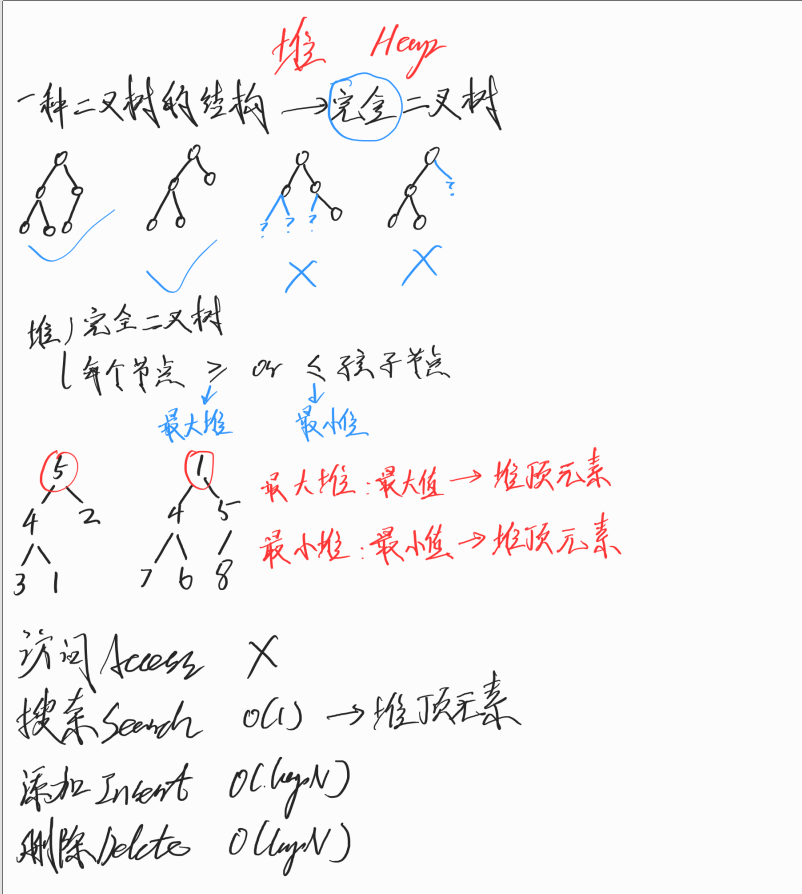 堆 Heap
一种二叉树的结构 → 完全二叉树
? ? ? ?
堆 完全二叉树
每个节点 ≥ or ≤ 孩子节点
最大堆 最小堆
5 1
最大堆:最大值 → 堆顶元素
4 2 4 5
最小堆:最小值 → 堆顶元素
3 1 7 6 8
访问Access X
搜索Search O(1) → 堆顶元素
添加Insert O(logN)
删除Delete O(logN)